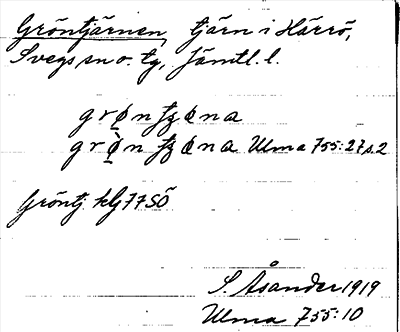 Gröntjärnen, tjärn i Härrö,
Svegs sn o. tg, Jämtl. l.
grø̱n ʈȥøna
grø̱̀n ʈȥøna Ulma 755:27 s. 2
Gröntj. kbl 77 SÖ
S. Åsander 1919
Ulma 755:10